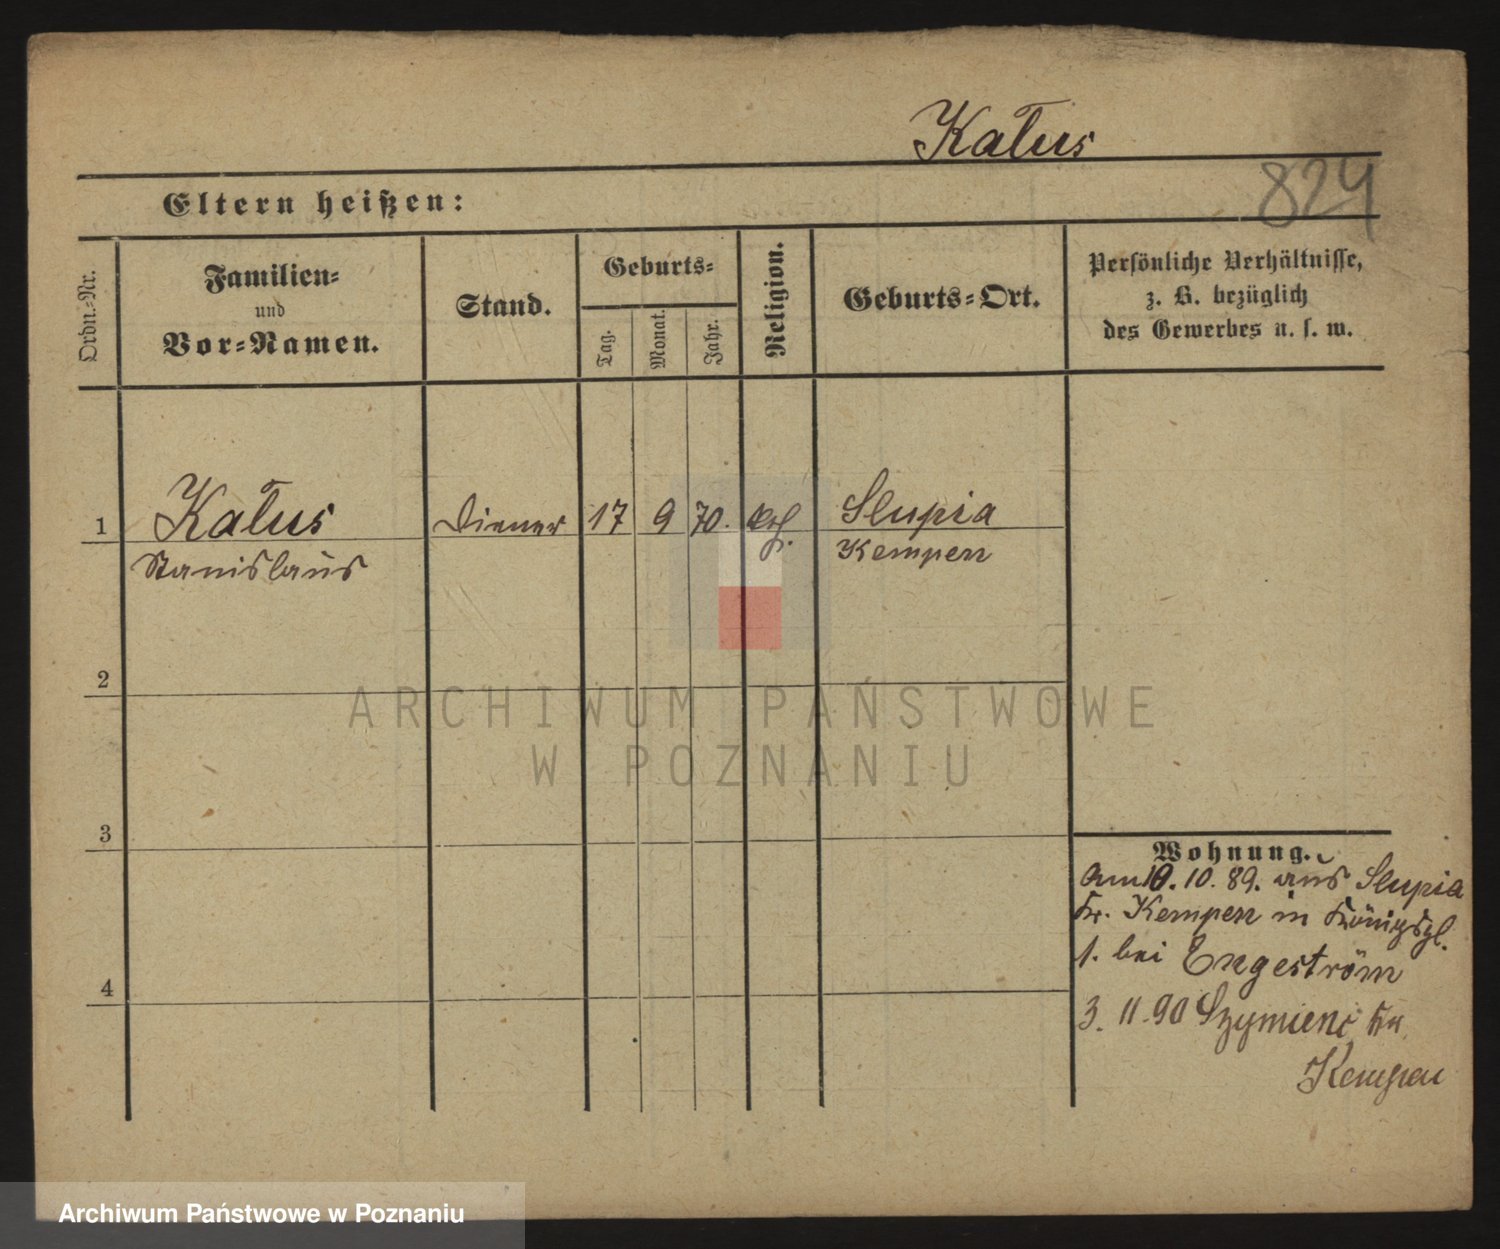 Katus
824
Eltern heißen:
Ordn.-Nr.
Familien-
und
Vor-Namen.
Stand.
Geburts-
Tag.
Monat.
Jahr.
Religion.
Geburts-Ort.
Persönliche Verhältnisse,
z. B. bezüglich
des Gewerbes u. s. w.
1
Katus
Stanislaus
Diener
17
9
70.
Slupia
Kempen
2
3
4
ARCHIWUM PAŃSTWOWE
W POZNANIU
Wohnung.
am 10. 10. 89. aus Slupia
Kr. Kempen in Königspl.
1. bei Engeström
3. 11. 90 Szymienc Kr.
Kempen
Archiwum Państwowe w Poznaniu